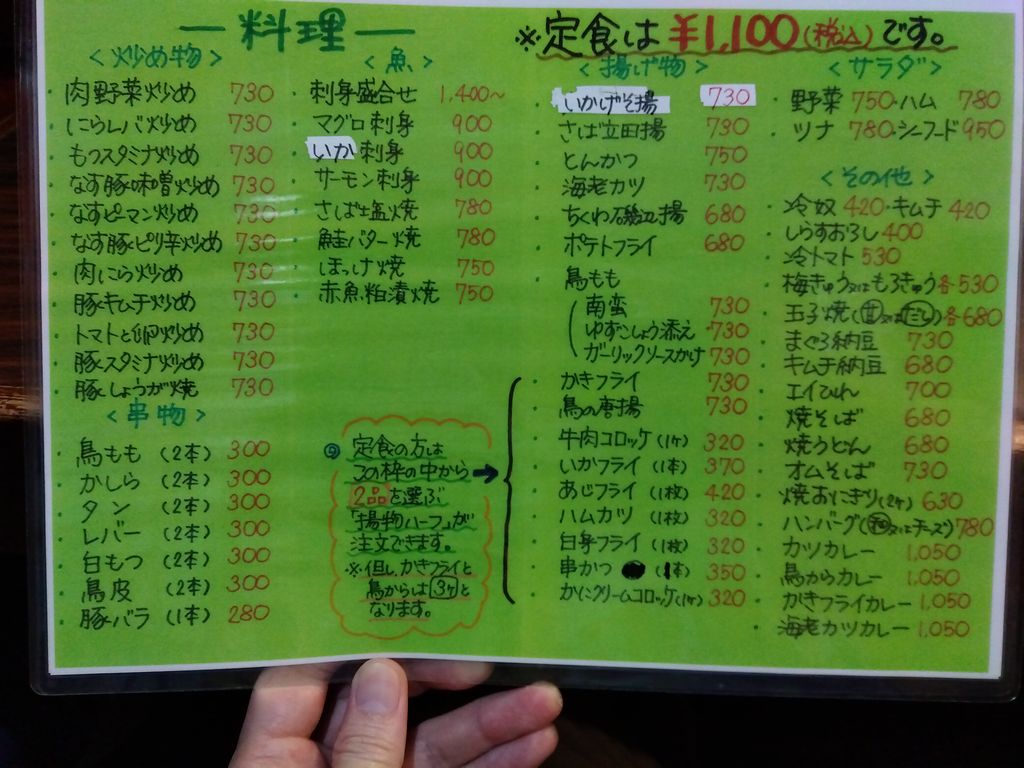 ー料理ー
※定食は¥1,100(税込)です。
<炒め物>
・肉野菜炒め 730
・にらレバ炒め 730
・もつスタミナ炒め 730
・なす豚味噌炒め 730
・なすピーマン炒め 730
・なす豚ピリ辛炒め 730
・肉にら炒め 730
・豚キムチ炒め 730
・トマトと卵炒め 730
・豚スタミナ炒め 730
・豚しょうが焼 730
<串物>
・鳥もも (2本) 300
・かしら (2本) 300
・タン (2本) 300
・レバー (2本) 300
・白もつ (2本) 300
・鳥皮 (2本) 300
・豚バラ (1本) 280
<魚>
・刺身盛合せ 1,400〜
・マグロ刺身 900
・いか刺身 900
・サーモン刺身 900
・さば塩焼 780
・鮭バター焼 780
・ほっけ焼 750
・赤魚粕漬焼 750
◎定食の方は
この枠の中から→
2品を選ぶ
「揚物ハーフ」が
注文できます。
※但し、かきフライと
鳥からは3ケと
なります。
<揚げ物>
・いかげそ揚 730
・さば立田揚 730
・とんかつ 750
・海老カツ 730
・ちくわ磯辺揚 680
・ポテトフライ 680
・鳥もも
南蛮 730
ゆずこしょう添え 730
ガーリックソースかけ 730
・かきフライ 730
・鳥の唐揚 730
・牛肉コロッケ(1ケ) 320
・いかフライ (1本) 370
・あじフライ (1枚) 420
・ハムカツ (1枚) 320
・白身フライ (1枚) 320
・串かつ (1本) 350
・かにクリームコロッケ(1ケ) 320
<サラダ>
・野菜 750・ハム 780
・ツナ 780・シーフード 950
<その他>
・冷奴 420・キムチ 420
・しらすおろし 400
・冷トマト 530
・梅きゅう又はもろきゅう各530
・玉子焼(甘又はだし)各680
・まぐろ納豆 730
・キムチ納豆 680
・エイひれ 700
・焼そば 680
・焼うどん 680
・オムそば 730
・焼おにぎり(2ケ) 630
・ハンバーグ(和又はチーズ)780
・カツカレー 1,050
・鳥からカレー 1,050
・かきフライカレー 1,050
・海老カツカレー 1,050